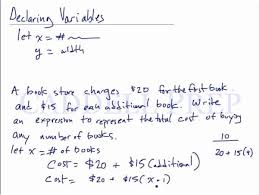 Declaring Variables
let x = #
y = width
A book store charges $20 for the first book
and $15 for each additional book. Write
an expression to represent the total cost of buying
any number of books.
let x = # of books
Cost = $20 + $15 (additional)
Cost = $20 + $15 (x - 1)
10
20 + 15(9)